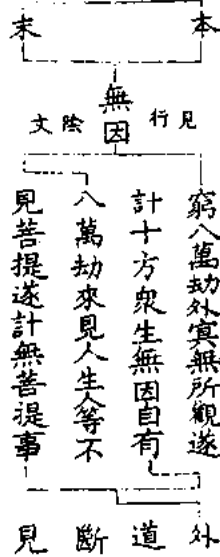 本
末
無因
見行
陰文
窮八萬劫外冥無所觀遂
計十方衆生無因自有
八萬劫來見人生人等不
見菩提遂計無菩提事
外道斷見